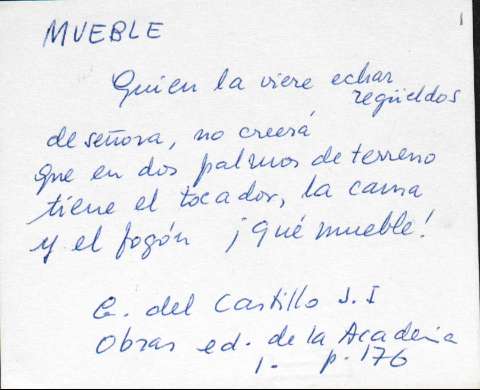 1
MUEBLE
Quien la viere echar
regüeldos
de señora, no creerá
que en dos palmos de terreno
tiene el tocador, la cama
y el fogón ¡qué mueble!
G. del Castillo S. I
Obras ed. de la Academia
1. p. 176